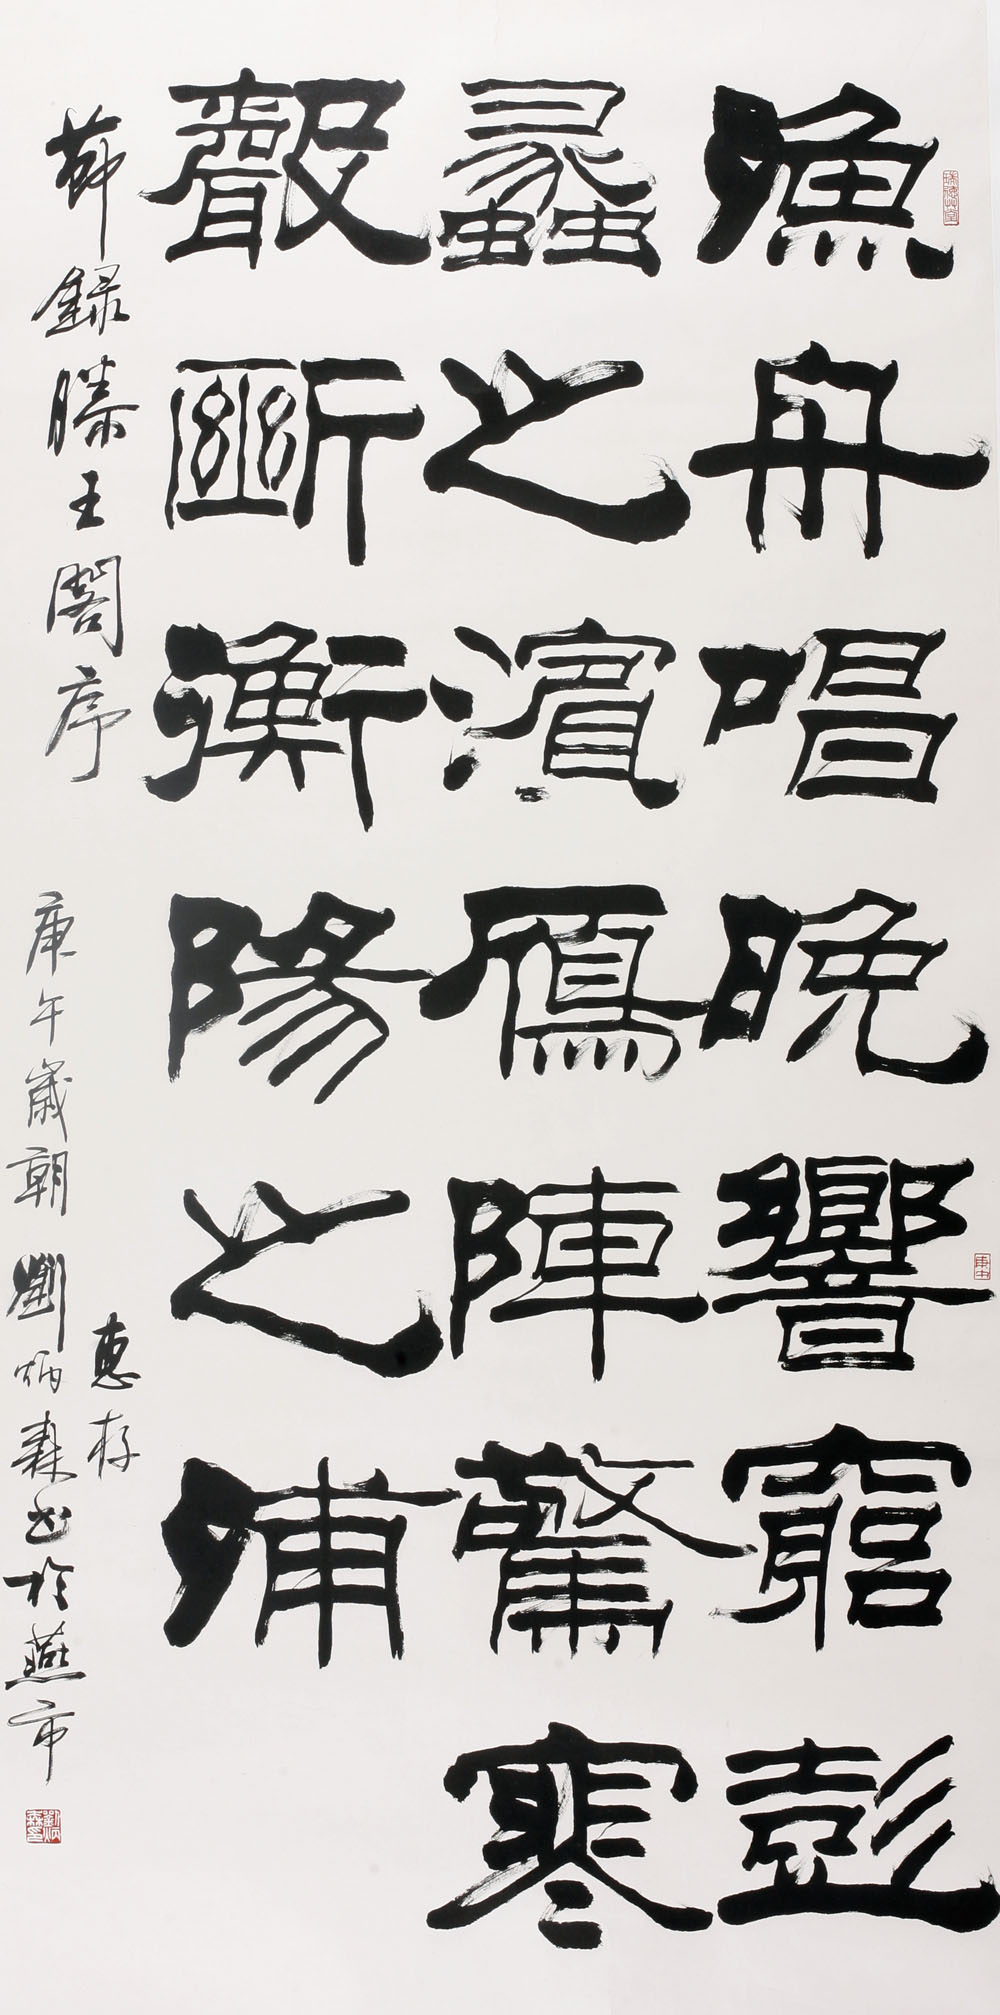 漁舟唱晚響窮彭
蠡之濱鴈陣驚寒
聲斷衡陽之浦
節録滕王閣序
惠存
庚午歲朝 劉炳森书於燕市
庚午
劉炳森印